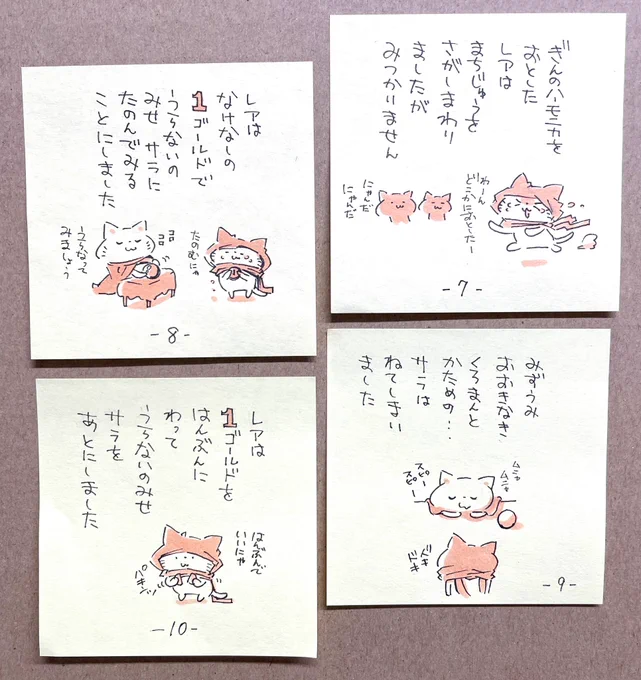 ぎんのハーモニカを
おとした
レアは
まちじゅうを
さがしまわり
ましたが
みつかりません
わーん
どこかにおとしたー
にゃんだ
にゃんだ
-7-
レアは
なけなしの
1ゴールドで
うらないの
みせ サラに
たのんでみる
ことにしました
たのむにゃ
うらなって
みましょう
-8-
みずうみ
おおきなき
くろまんと
かための・・・
サラは
ねてしまい
ました
ムニャ
ムニャ
スピー
スピー
ドキ
ドキ
-9-
レアは
1ゴールドを
はんぶんに
わって
うらないのみせ
サラを
あとにしました
はんぶんで
いいにゃ
パキンッ
-10-